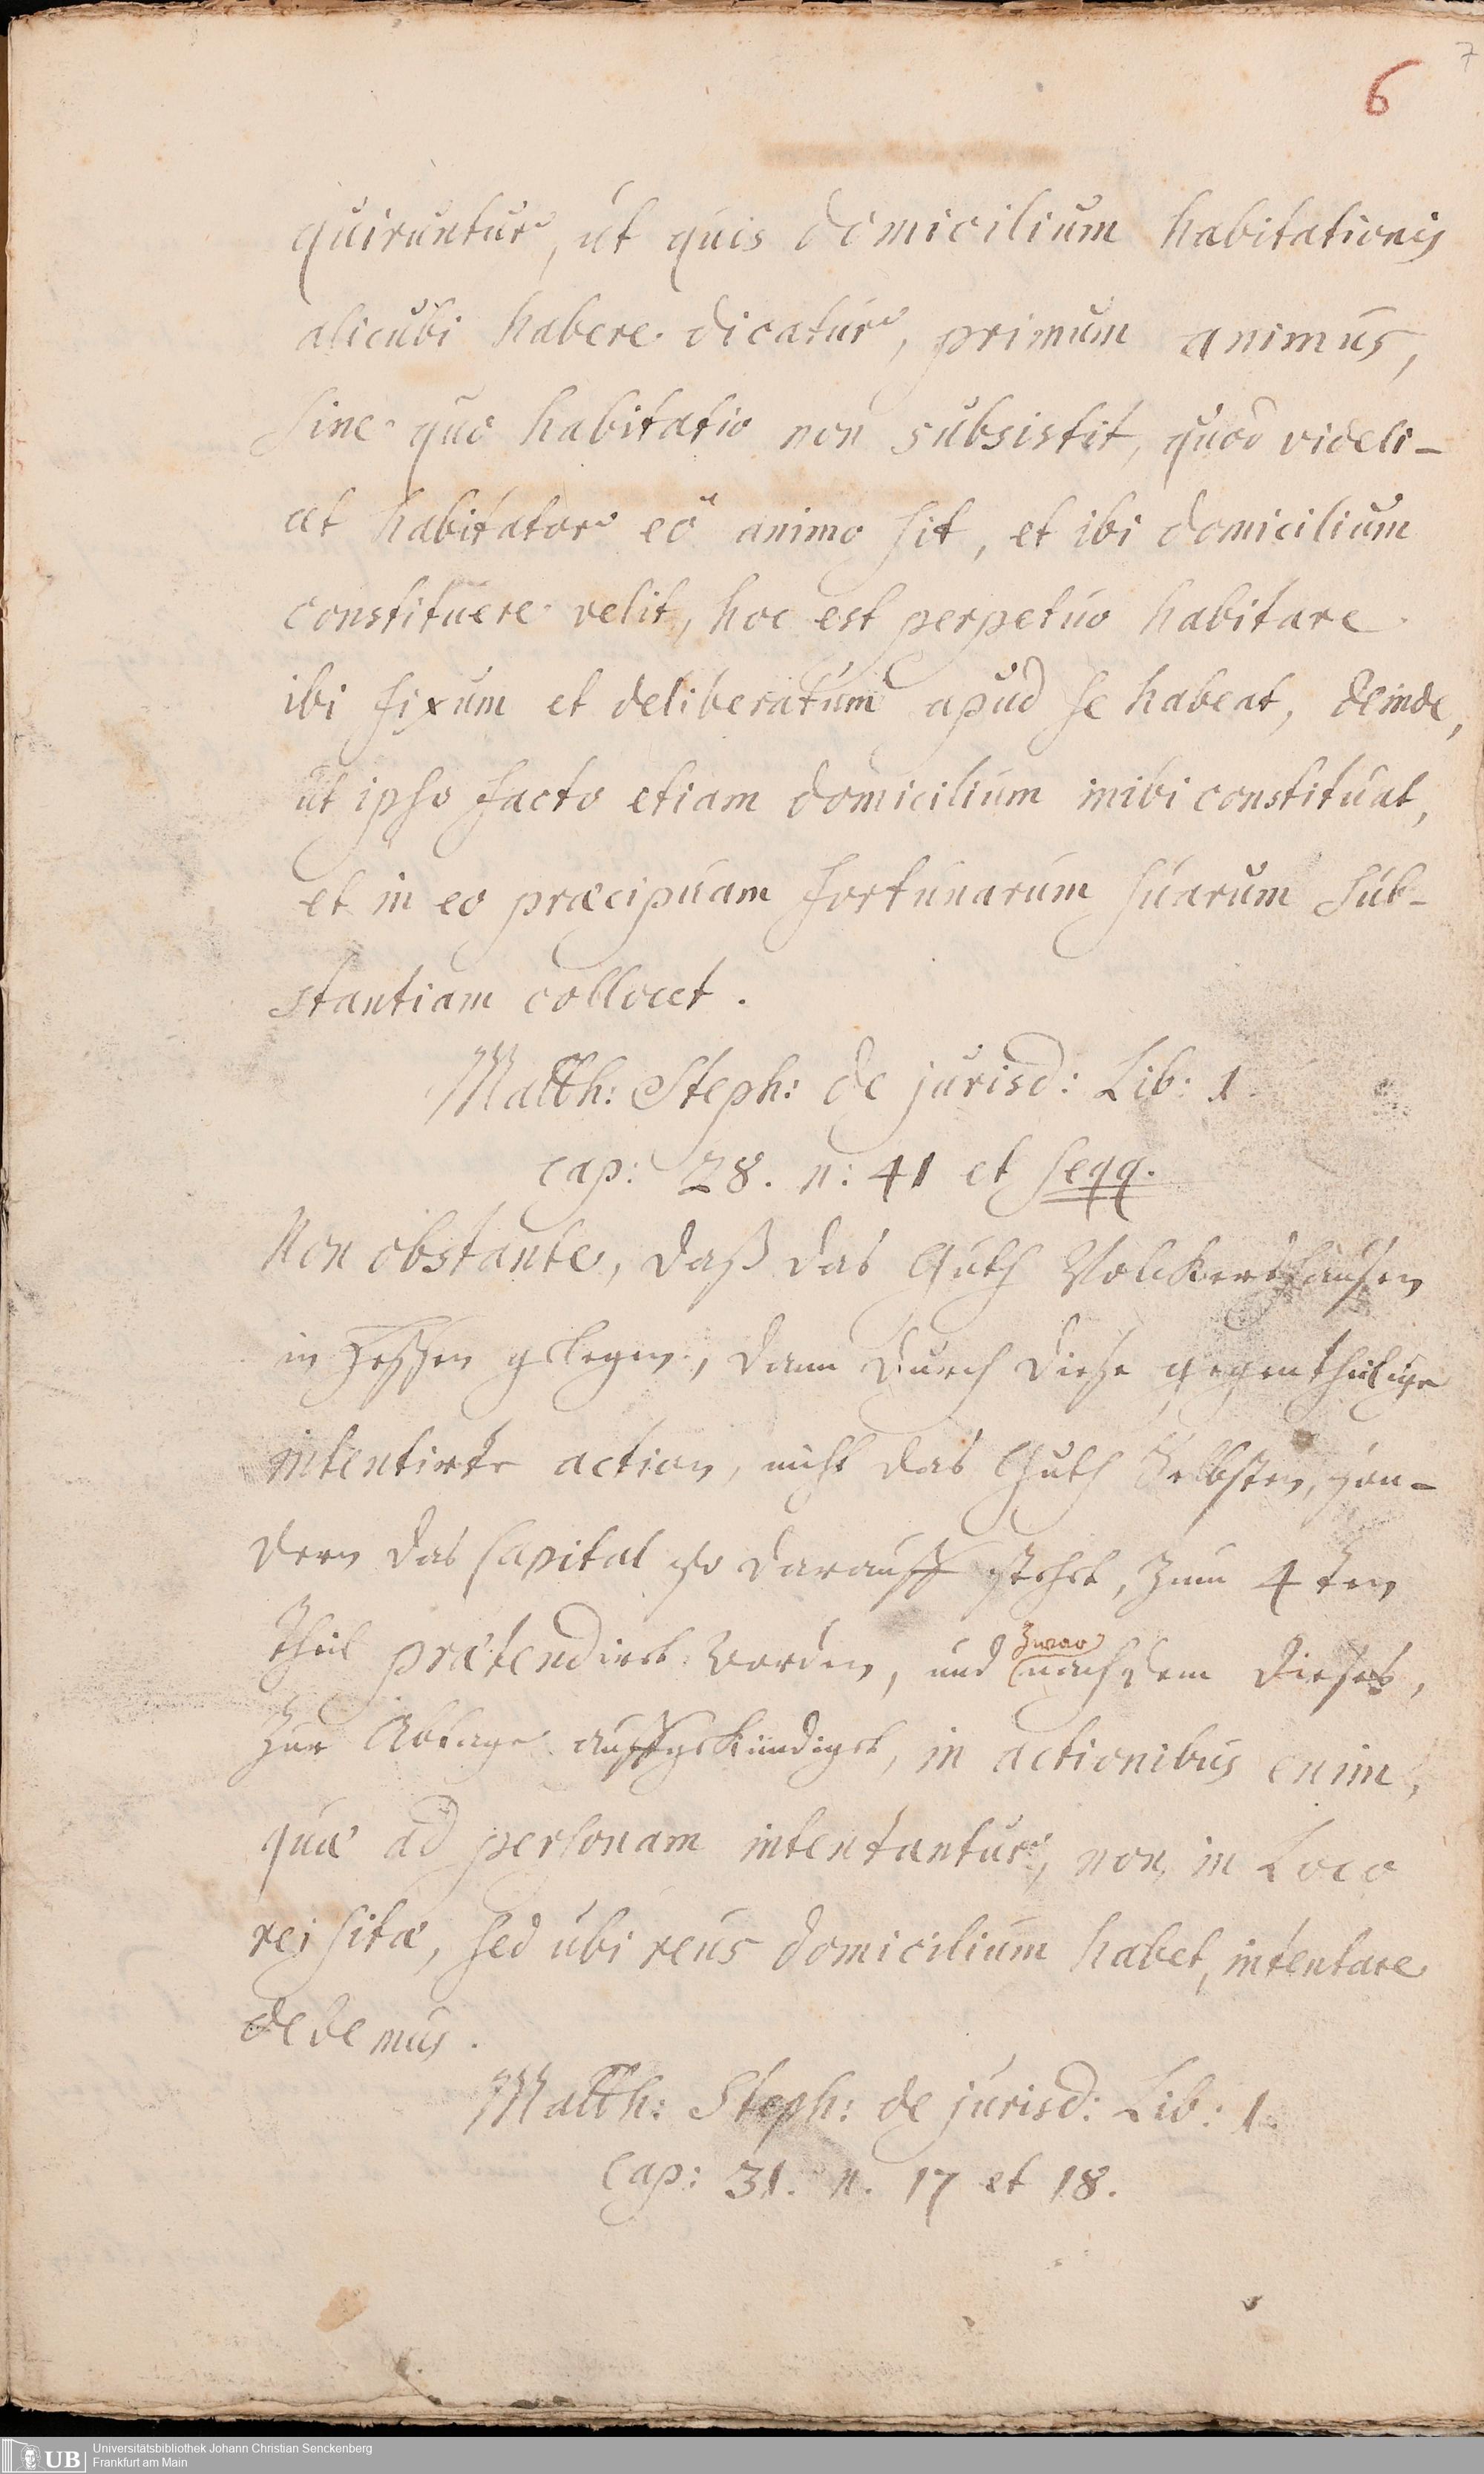 7
6
quiruntur, ut quis domicilium habitationis
alicubi habere dicatur, primum animus,
sine quo habitatio non subsistit, quod videli-
cet habitator eo animo sit, et ibi domicilium
constituere velit, hoc est perpetuo habitare
ibi fixum et deliberatum apud se habeat, deinde,
ut ipso facto etiam domicilium inibi constituat,
et in eo præcipuam fortunarum suarum sub-
stantiam collocet.
Matth: Steph: de jurisd: Lib: 1
cap: 28. n: 41 et seqq.
Non obstante, daß das Guth Volckershausen
in Hessen gelegen, dann durch diese gegentheilige
intentirte action, nicht das Guth Selbsten, son-
dern das Capital so darauff stehet, zum 4ten
theil prætendiret worden, und zwar nachdem dieses,
zur Ablage auffgekündiget, in actionibus enim,
quæ ad personam intentantur, non in Loco
rei sitæ, sed ubi reus domicilium habet, intentare
debemus.
Matth: Steph: de jurisd: Lib: 1.
Cap: 31. n. 17 et 18.
UB
Universitätsbibliothek Johann Christian Senckenberg
Frankfurt am Main